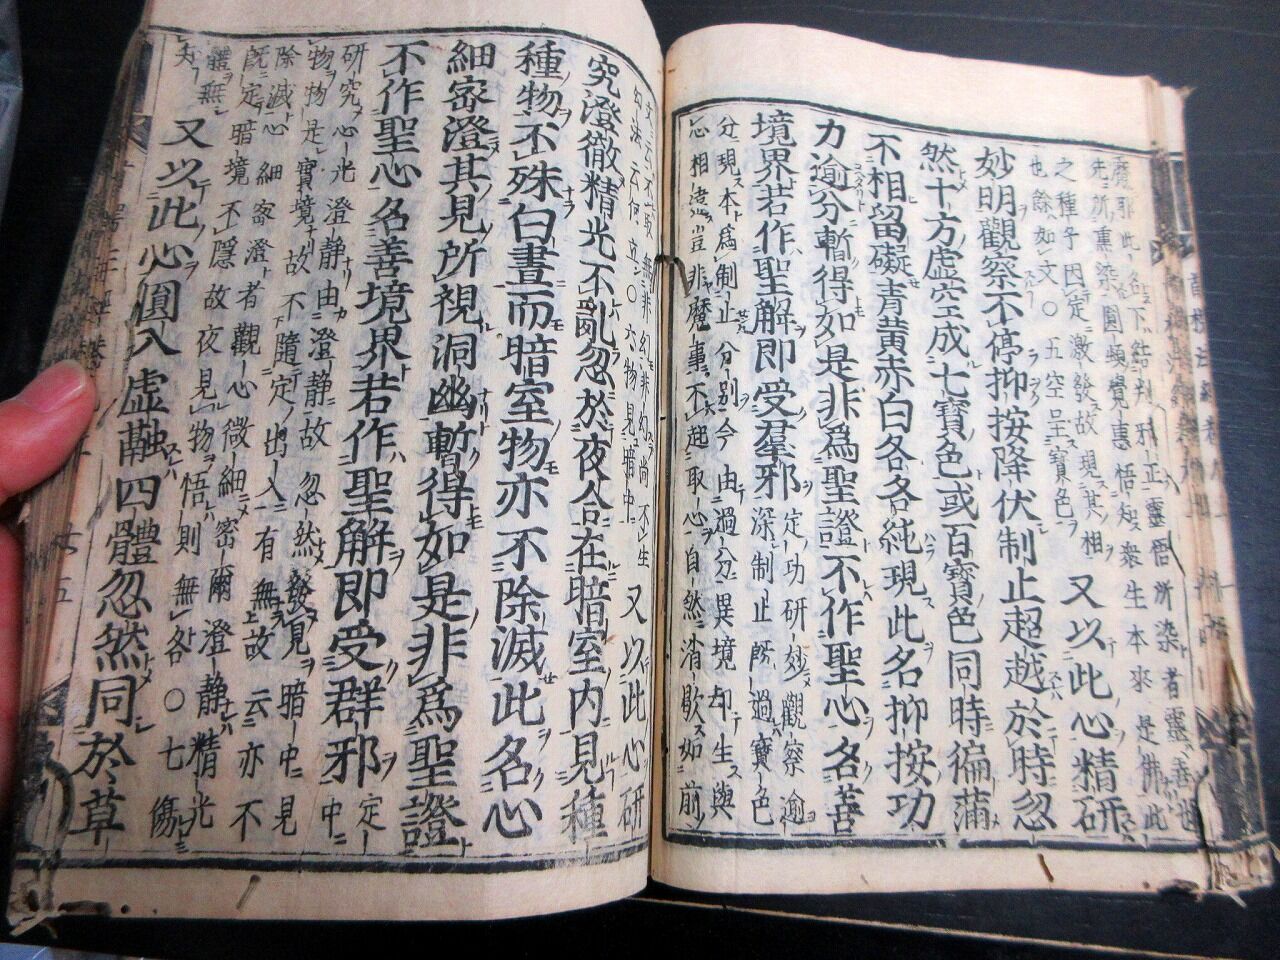 先所熏染圓頓覺惠悟知衆生本來是佛此
之種子因定激發故現其相
也餘如文〇五空呈寶色
又以此心精研
妙明觀察不停抑按降伏制止超越於時忽
然十方虚空成七寶色或百寶色同時徧蒲
不相留礙青黄赤白各各純現此名抑按功
力逾分暫得如是非爲聖證不作聖心名善
境界若作聖解即受羣邪
定功研妙觀察逾
深制止既過寶色
分現本爲制止分別今由過分異境却生與
心相違豈非魔事不起取心自然消歇如前
幻法云何立〇六物見暗中
又以此心研
究澄徹精光不亂忽於夜合在暗室内見種
種物不殊白晝而暗室物亦不除滅此名心
細密澄其見所視洞幽暫得如是非爲聖證
不作聖心名善境界若作聖解即受群邪
定中
研究心光澄静由澄静故忽然發見暗中見
物物是實境故不隨定出入有無故云亦不
除滅心細密澄者觀心微細密爾澄静精光
既定暗境不隱故夜見物悟則無咎〇七
體無
知
又以此心圓入虚融四體忽然同於草